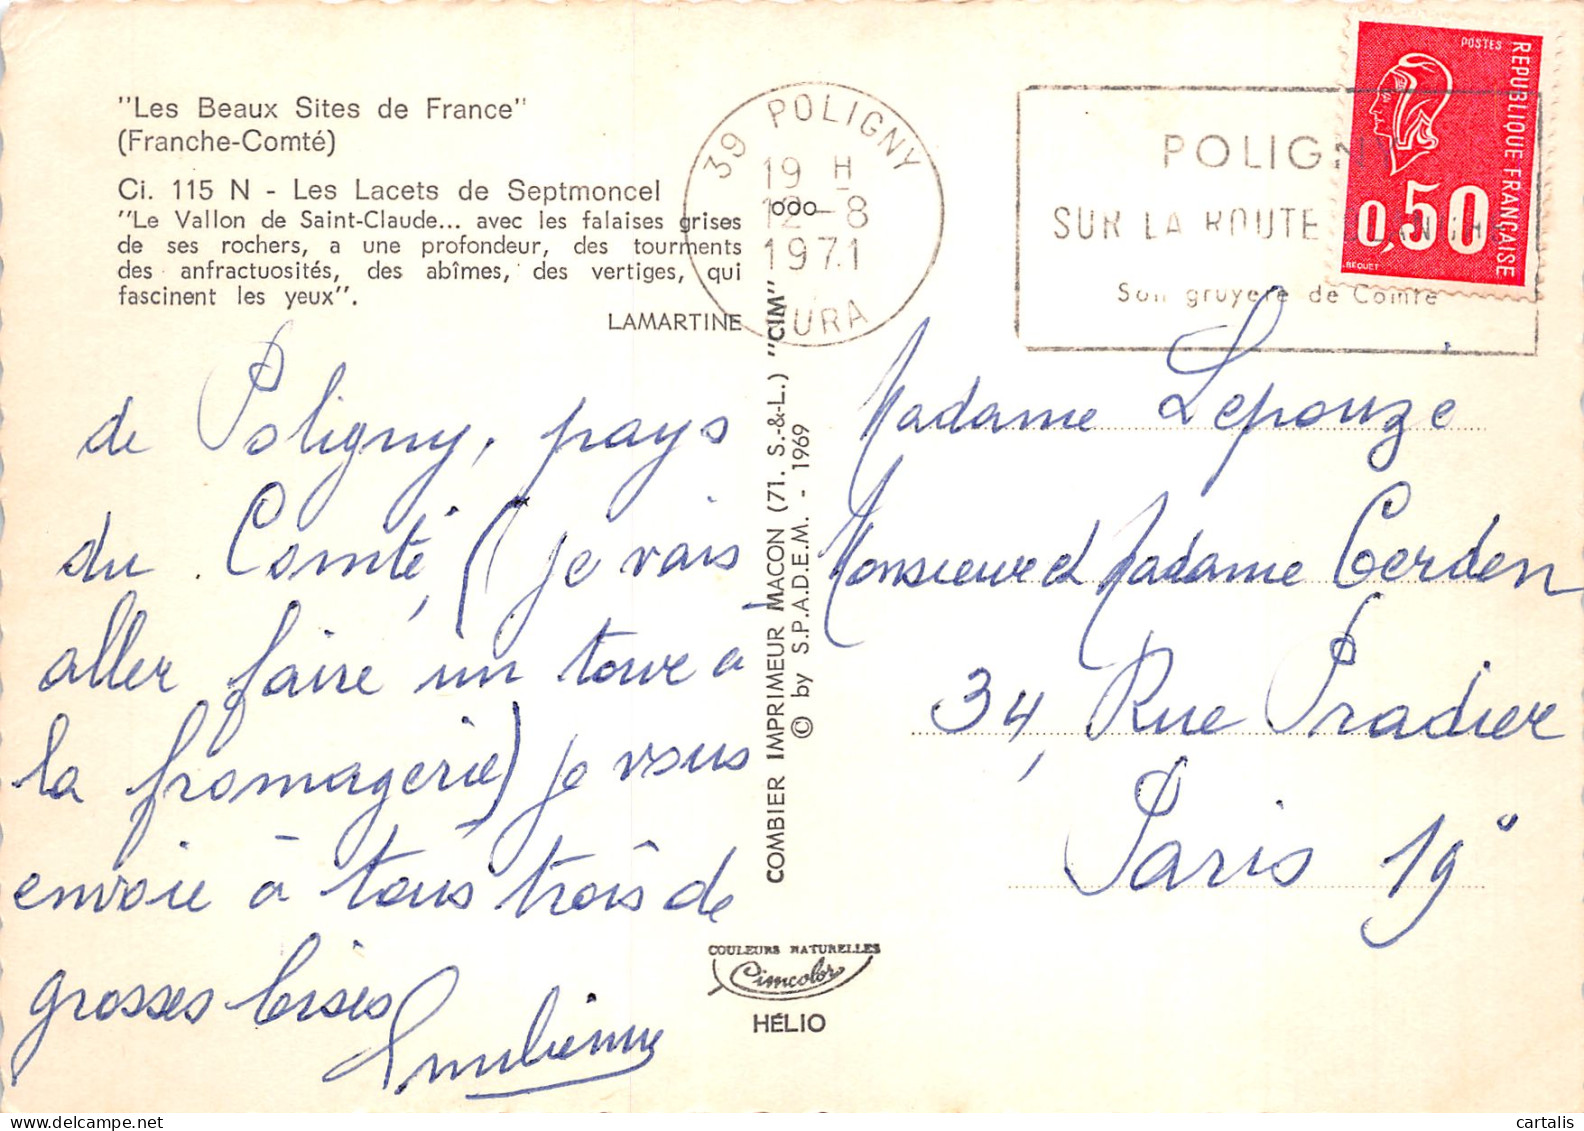 "Les Beaux Sites de France"
(Franche-Comté)
Ci. 115 N - Les Lacets de Septmoncel
"Le Vallon de Saint-Claude... avec les falaises grises
de ses rochers, a une profondeur, des tourments
des anfractuosités, des abîmes, des vertiges, qui
fascinent les yeux".
LAMARTINE
39 POLIGNY
19 H
12-8
1971
JURA
000
POLIGNY
SUR LA ROUTE BLANCHE
Son gruyere de Comté
POSTES
REPUBLIQUE FRANÇAISE
0,50
BEQUET
de Poligny, pays
du Comté, (je vais
aller faire un tour à
la fromagerie) je vous
envoie à tous trois de
grosses bises
COMBIER IMPRIMEUR MACON (71. S.-&-L.) "CIM"
© by S.P.A.D.E.M. - 1969
Madame Lepouzé
Monsieur et Madame Cerden
34, Rue Pradier
Paris 19°
COULEURS NATURELLES
Cimcolor
HÉLIO
cartalis
www.delcampe.net